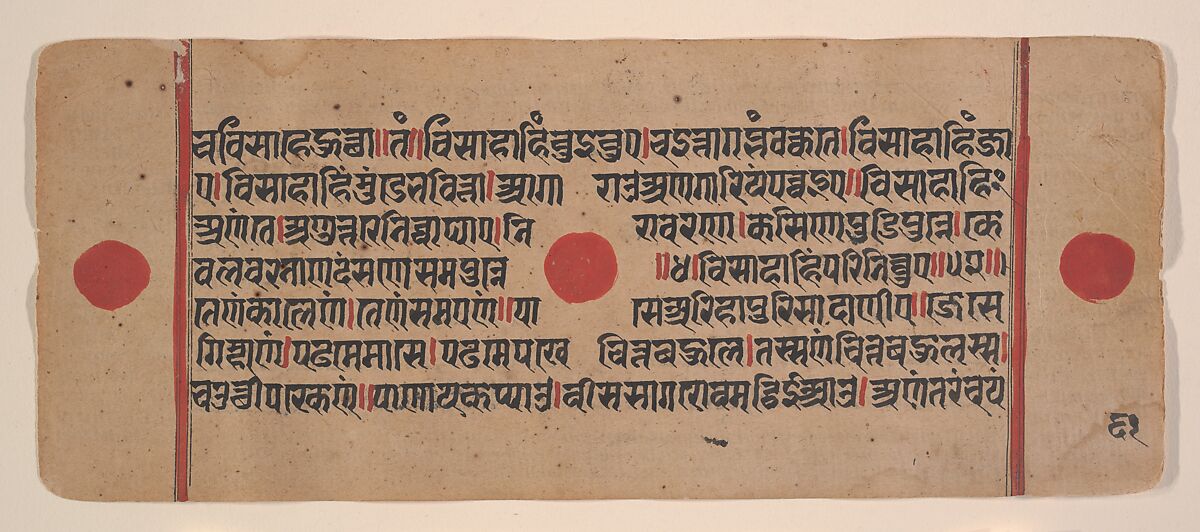 चविसाहेहुत्था॥तं॥विसाहाहिंचुइचुए।चइत्तागब्भंवक्कंते।विसाहाहिंजा
ए।विसाहाहिंमुंडेभवित्ता।आगा राउअणगारियंपव्वइए॥विसाहाहिः
अणंते।अणुत्तरेनिव्वाघाए।नि रावरणे।कसिणेपडिपुन्ने।के
वलवरनाणदंसणेसमुपन्ने ॥४।विसाहाहिंपरिनिव्वुए॥५२॥
तेणंकालेणं।तेणंसमएणं॥पा सेअरिहापुरिसादाणीए॥जेसे
गिम्हाणं।पढमेमासे।पढमेपखे चित्तबहुले।तस्सणंचित्तबहुलस्स।
चउत्थीपरकेणं॥पाणायकप्पाउ।वीसंसागरोवमट्ठिईआउ।अणंतरंचयं
६१